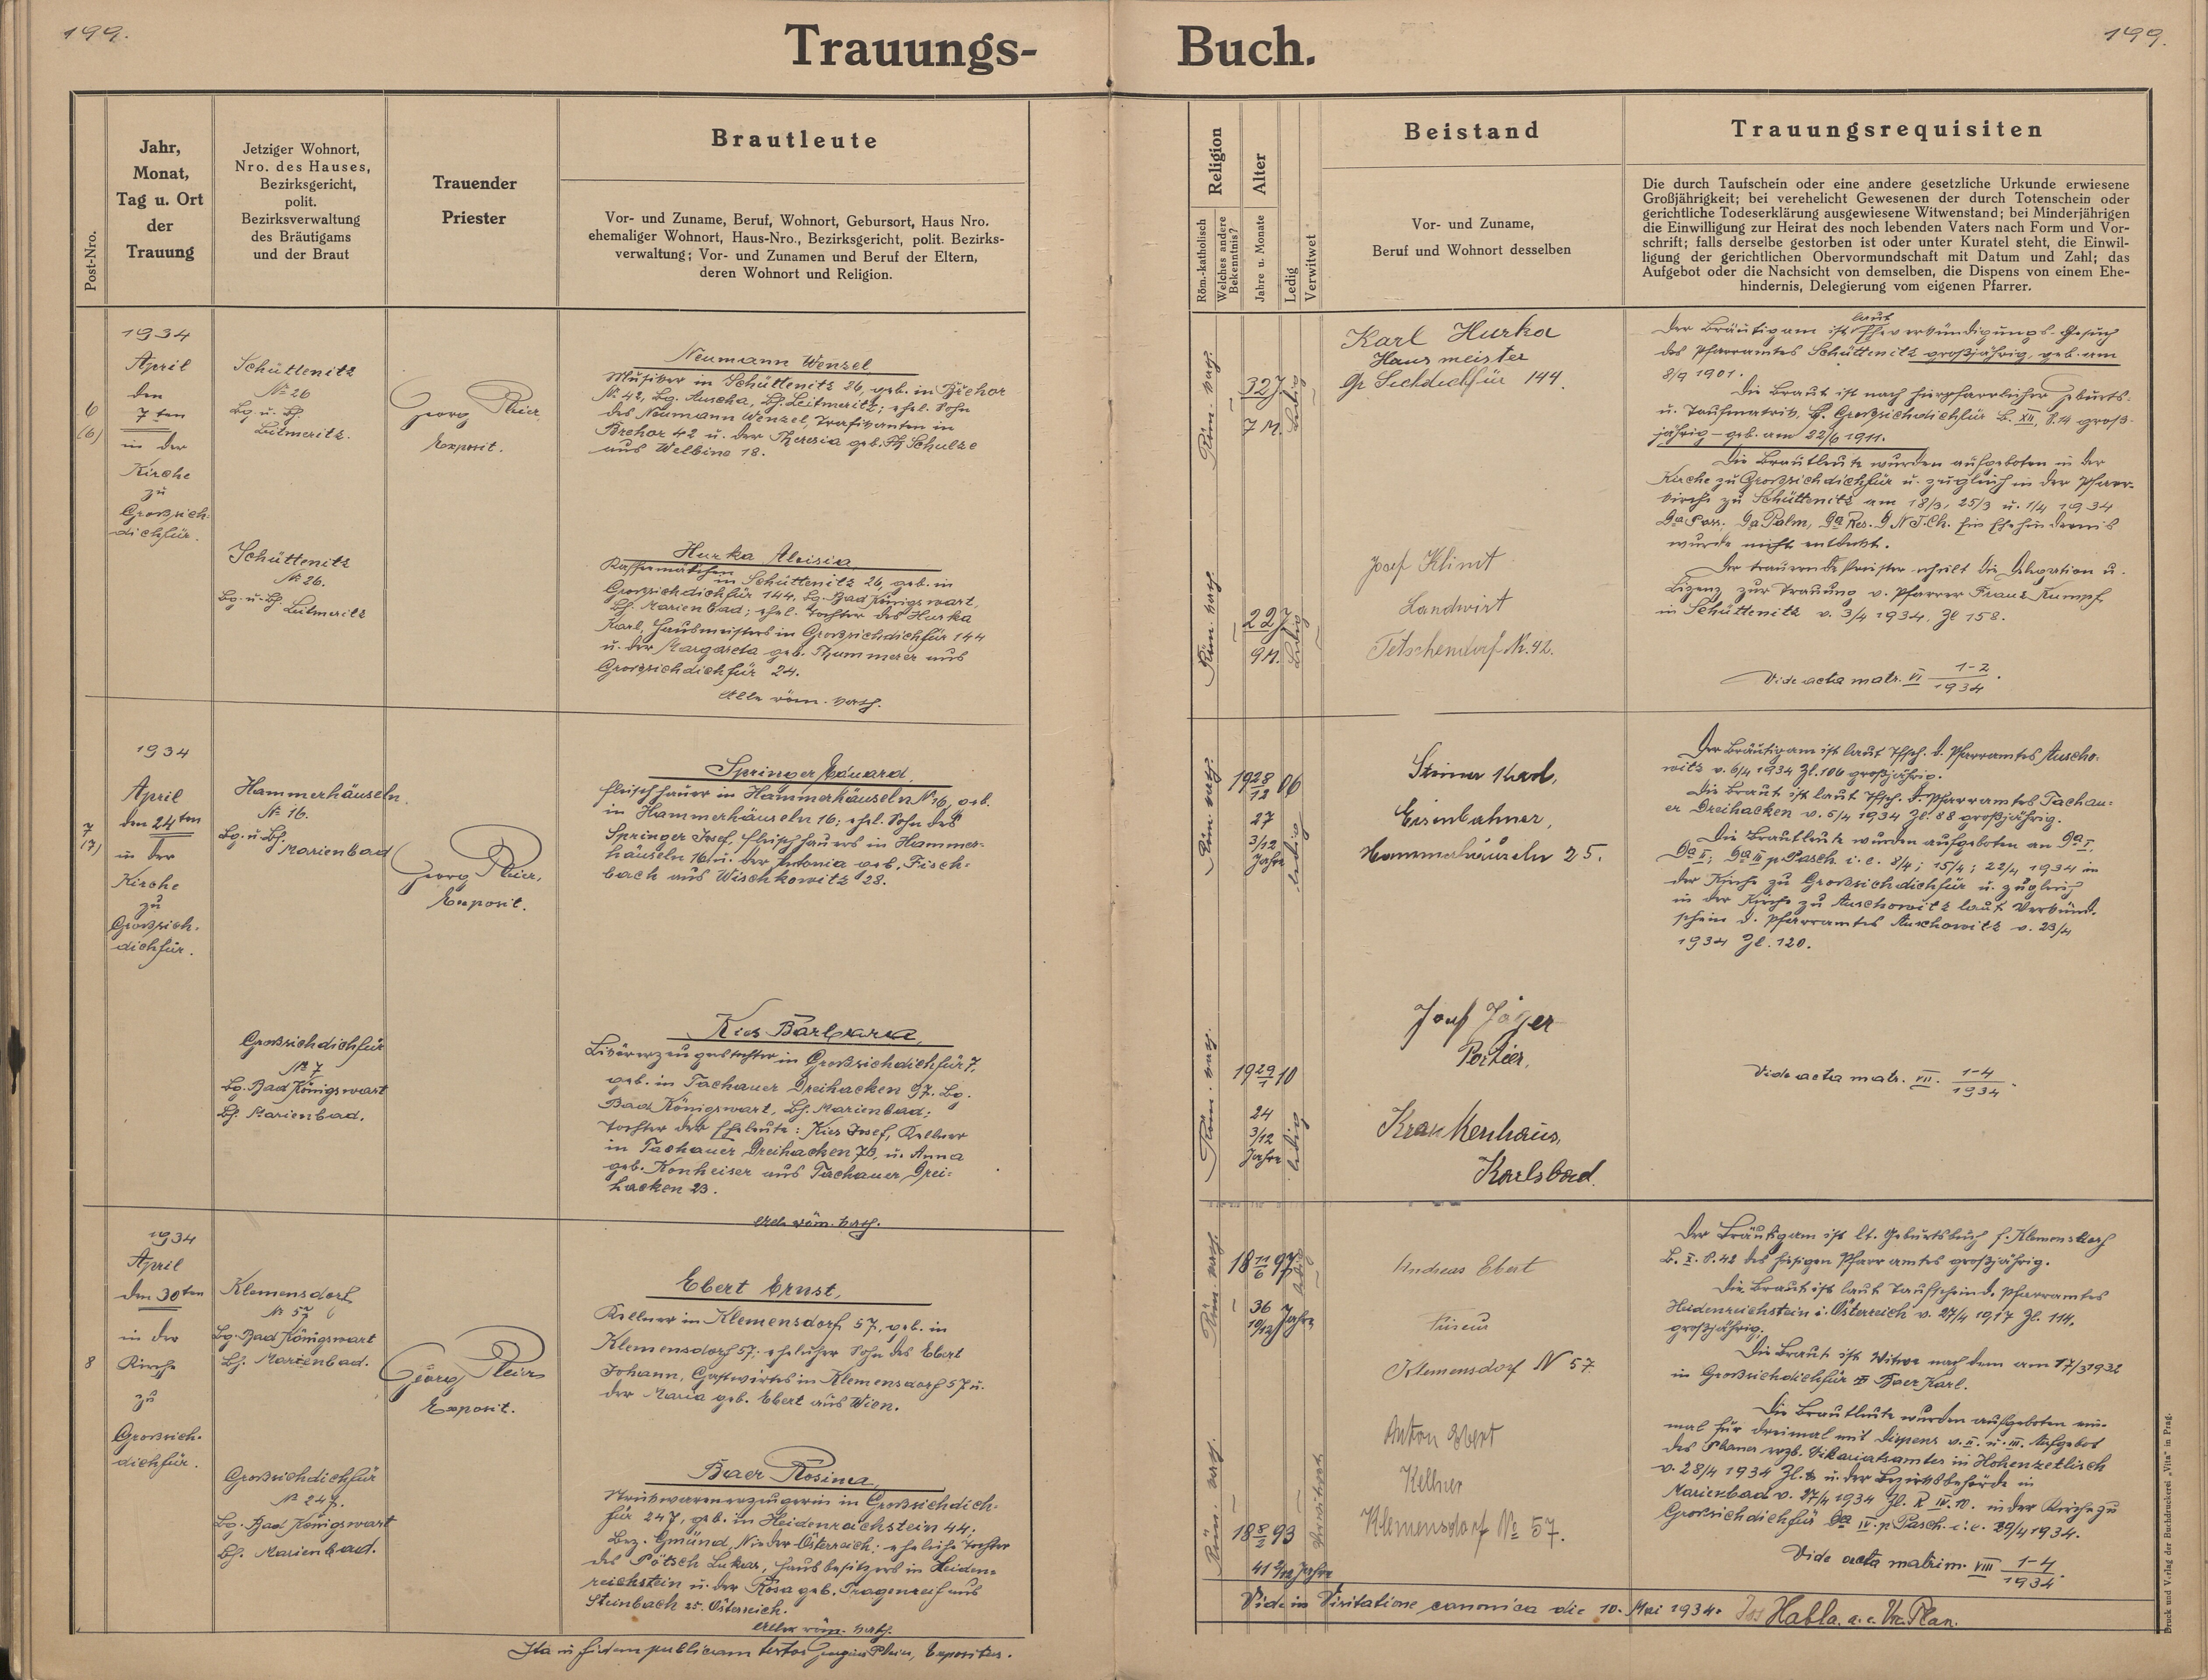 199.
Trauungs-
Buch.
199.
Post-Nro.
Jahr,
Monat,
Tag u. Ort
der
Trauung
Jetziger Wohnort,
Nro. des Hauses,
Bezirksgericht,
polit.
Bezirksverwaltung
des Bräutigams
und der Braut
Trauender
Priester
Brautleute
Vor- und Zuname, Beruf, Wohnort, Gebursort, Haus Nro.
ehemaliger Wohnort, Haus-Nro., Bezirksgericht, polit. Bezirks-
verwaltung; Vor- und Zunamen und Beruf der Eltern,
deren Wohnort und Religion.
Religion
Röm.-katholisch
Welches andere
Bekenntnis?
Alter
Jahre u. Monate
Ledig
Verwitwet
Beistand
Vor- und Zuname,
Beruf und Wohnort desselben
Trauungsrequisiten
Die durch Taufschein oder eine andere gesetzliche Urkunde erwiesene
Großjährigkeit; bei verehelicht Gewesenen der durch Totenschein oder
gerichtliche Todeserklärung ausgewiesene Witwenstand; bei Minderjährigen
die Einwilligung zur Heirat des noch lebenden Vaters nach Form und Vor-
schrift; falls derselbe gestorben ist oder unter Kuratel steht, die Einwil-
ligung der gerichtlichen Obervormundschaft mit Datum und Zahl; das
Aufgebot oder die Nachsicht von demselben, die Dispens von einem Ehe-
hindernis, Delegierung vom eigenen Pfarrer.
6
(6)
1934
April
den
7 ten
in der
Kirche
zu
Großsich-
dichfür.
Schüttenitz
№ 26
Bg. u. Bh.
Leitmeritz.
Georg Pleier
Exposit.
Neumann Wenzel,
Musiker in Schüttenitz 26, geb. in Břehor
№ 42, Bg. Auscha, Bh. Leitmeritz; ehel. Sohn
des Neumann Wenzel, Trafikanten in
Brehor 42 u. der Theresia geb. Schulze
aus Welbine 18.
Schüttenitz
№ 26.
Bg. u. Bh. Leitmeritz
Hurka Aloisia,
in Schüttenitz 26, geb. in
Großsichdichfür 144, Bg. Bad Königswart,
Bh. Marienbad; ehel. Tochter des Hurka
Karl, Hausmeisters in Großsichdichfür 144
u. der Margareta geb. Thummerer aus
Großsichdichfür 24.
Alle röm. kath.
Röm. kath.
32 J.
7 M.
ledig
Karl Hurka
Hausmeister
Gr. Sichdichfür 144.
Röm. kath.
22 J.
9 M.
ledig
Josef Klimt
Landwirt
Tetschendorf № 42.
Der Bräutigam ist laut Eheverkündigungs-Gesuch
des Pfarramtes Schüttenitz großjährig, geb. am
8/9 1901.
Die Braut ist nach hierpfarrlicher Geburts-
u. Taufmatrik, f. Großsichdichfür B. XII, S. 14 groß-
jährig – geb. am 22/6 1911.
Die Brautleute wurden aufgeboten in der
Kirche zu Großsichdichfür u. zugleich in der Pfarr-
kirche zu Schüttenitz am 18/3, 25/3 u. 1/4 1934
Da Pass. Da Palm, Da Res. D N J. Ch. Ein Ehehindernis
wurde nicht entdeckt.
Der trauende Priester erhielt die Delegation u.
Lizenz zur Trauung v. Pfarrer Franz Kumpf
in Schüttenitz v. 3/4 1934. Zl 158.
Vide acta matr. VI 1-2/1934.
7
(7)
1934
April
den 24ten
in der
Kirche
zu
Großsich-
dichfür.
Hammerhäuseln.
№ 16.
Bg. u. Bh.
Marienbad
Georg Pleier,
Exposit.
Springer Eduard,
Fleischhauer in Hammerhäuseln № 16, geb.
in Hammerhäuseln 16; ehel. Sohn des
Springer Josef, Fleischhauers in Hammer-
häuseln 16 u. der Antonia geb. Fisch-
bach aus Wischkowitz 28.
Großsichdichfür
№ 7
Bg. Bad Königswart
Bh. Marienbad.
Kies Barbara,
Likörerzeugerstochter in Großsichdichfür 7,
geb. in Tachauer Dreihacken 97. Bg.
Bad Königswart, Bh. Marienbad;
Tochter der Eheleute: Kies Josef, Kellner
in Tachauer Dreihacken 70, u. Anna
geb. Konheiser aus Tachauer Drei-
hacken 23.
Alle röm. kath.
Röm. kath.
19 28/12 06
27
3/12
Jahre
ledig
Steiner Karl,
Eisenbahner,
Hammerhäuseln 25.
Röm. kath.
19 29/1 10
24
3/12
Jahre
ledig
Josef Jäger
Portier,
Krankenhaus,
Karlsbad.
Der Bräutigam ist laut Tfsch. d. Pfarramtes Auscho-
witz v. 6/4 1934 Zl. 106 großjährig.
Die Braut ist laut Tfsch. d. Pfarramtes Tachau-
er Dreihacken v. 5/4 1934 Zl. 88 großjährig.
Die Brautleute wurden aufgeboten an Da I,
Da II, Da III p Pasch i. e. 8/4; 15/4; 22/4 1934 in
der Kirche zu Großsichdichfür u. zugleich
in der Kirche zu Auschowitz laut Verkünd-
schein d. Pfarramtes Auschowitz v. 23/4
1934 Zl. 120.
Vide acta matr. VII. 1-4/1934.
8
1934
April
den 30ten
in der
Kirche
zu
Großsich-
dichfür.
Klemensdorf
№ 57
Bg. Bad Königswart
Bh. Marienbad.
Georg Pleier
Exposit.
Ebert Ernst,
Kellner in Klemensdorf 57, geb. in
Klemensdorf 57; ehelicher Sohn des Ebert
Johann, Gastwirtes in Klemensdorf 57 u.
der Maria geb. Ebert aus Wien.
Großsichdichfür
№ 247.
Bg. Bad Königswart
Bh. Marienbad.
Baer Rosina,
Strickwarenerzeugerin in Großsichdich-
für 247, geb. in Heidenreichstein 44;
Bez. Gmünd, Nieder-Österreich; eheliche Tochter
des Pötsch Lukas, Hausbesitzers in Heiden-
reichstein u. der Rosa geb. Tragenreif aus
Steinbach 25. Österreich.
Alle röm. kath.
Röm. kath.
18 11/6 97
36
10/12 Jahre
ledig
Andreas Ebert
Friseur
Klemensdorf № 57
Röm. kath.
18 8/2 93
41 2/12 Jahre
Verwitwet
Anton Ebert
Kellner
Klemensdorf № 57.
Der Bräutigam ist lt. Geburtsbuch f. Klemensdorf
B. X. S. 42 des hiesigen Pfarramtes großjährig.
Die Braut ist laut Taufschein d. Pfarramtes
Heidenreichstein i. Österreich v. 27/4 1917 Zl. 114,
großjährig.
Die Braut ist Witwe nach dem am 17/3 1932
in Großsichdichfür Baer Karl.
Die Brautleute wurden aufgeboten ein-
mal für dreimal mit Dispens v. II. u. III. Aufgebot
des Planer erzb. Vikariatsamtes in Hohenzetlisch
v. 28/4 1934 Zl. u. der Bezirksbehörde in
Marienbad v. 27/4 1934 Zl. R IV. 10. in der Kirche zu
Großsichdichfür Da IV. p Pasch. i. e. 29/4 1934.
Vide acta matrim. VIII 1-4/1934.
Vide in Visitatione canonica die 10. Mai 1934. Jos Habla. a. e. Plan.
Ita in fidem publicam testor Georgius Pleier, Expositus.
Druck und Verlag der Buchdruckerei „Vita" in Prag.